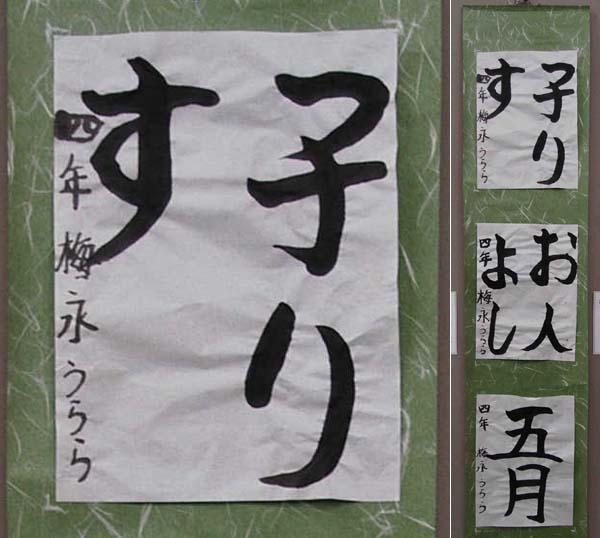 子り
す
四年 梅永うらら
子り
す
四年 梅永うらら
お人
よし
四年 梅永うらら
五月
四年 梅永うらら